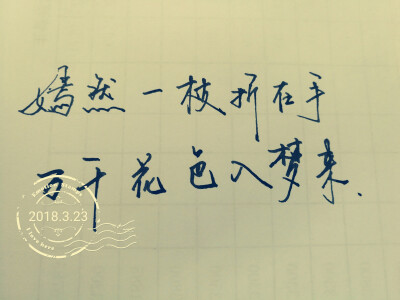 嫣然一枝折在手
万千花色入梦来.
2018.3.23